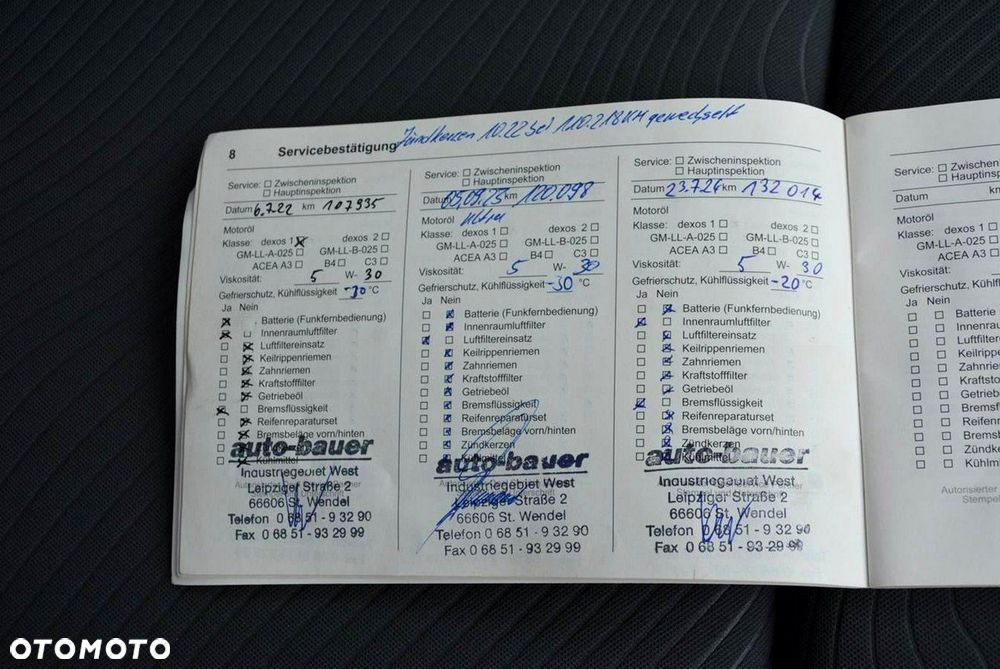 Zündkerzen 10.22 bei 110.218 KM gewechselt
8 Servicebestätigung
Service: Zwischeninspektion
Hauptinspektion
Datum 6.7.22 km 107935
Motoröl
Klasse: dexos 1 dexos 2
GM-LL-A-025 GM-LL-B-025
ACEA A3 B4 C3
Viskosität: 5 W- 30
Gefrierschutz, Kühlflüssigkeit -30 °C
Ja Nein
Batterie (Funkfernbedienung)
Innenraumluftfilter
Luftfiltereinsatz
Keilrippenriemen
Zahnriemen
Kraftstofffilter
Getriebeöl
Bremsflüssigkeit
Reifenreparaturset
Bremsbeläge vorn/hinten
Kühlmittel
auto-bauer
Industriegebiet West
Leipziger Straße 2
66606 St. Wendel
Telefon 0 68 51 - 9 32 90
Fax 0 68 51 - 93 29 99
Service: Zwischeninspektion
Hauptinspektion
Datum 05.09.23 km 120.098
Motoröl
Klasse: dexos 1 dexos 2
GM-LL-A-025 GM-LL-B-025
ACEA A3 B4 C3
Viskosität: 5 W- 30
Gefrierschutz, Kühlflüssigkeit -30 °C
Ja Nein
Batterie (Funkfernbedienung)
Innenraumluftfilter
Luftfiltereinsatz
Keilrippenriemen
Zahnriemen
Kraftstofffilter
Getriebeöl
Bremsflüssigkeit
Reifenreparaturset
Bremsbeläge vorn/hinten
Zündkerzen
Kühlmittel
auto-bauer
Industriegebiet West
Leipziger Straße 2
66606 St. Wendel
Telefon 0 68 51 - 9 32 90
Fax 0 68 51 - 93 29 99
Service: Zwischeninspektion
Hauptinspektion
Datum 23.7.24 km 132 014
Motoröl
Klasse: dexos 1 dexos 2
GM-LL-A-025 GM-LL-B-025
ACEA A3 B4 C3
Viskosität: 5 W- 30
Gefrierschutz, Kühlflüssigkeit -20 °C
Ja Nein
Batterie (Funkfernbedienung)
Innenraumluftfilter
Luftfiltereinsatz
Keilrippenriemen
Zahnriemen
Kraftstofffilter
Getriebeöl
Bremsflüssigkeit
Reifenreparaturset
Bremsbeläge vorn/hinten
Zündkerzen
Kühlmittel
auto-bauer
Industriegebiet West
Leipziger Straße 2
66606 St. Wendel
Telefon 0 68 51 - 9 32 90
Fax 0 68 51 - 93 29 99
Service: Zwischen
Hauptins
Datum
Motoröl
Klasse: dexos 1
GM-LL-A-025
ACEA A3
Viskosität:
Gefrierschutz, Kühlflü
Ja Nein
Batterie (F
Innenraum
Luftfiltere
Keilrippen
Zahnriem
Kraftstoff
Getriebeö
Bremsflü
Reifenrep
Bremsbe
Zündkerz
Kühlm
Autorisierter
Stempel
OTOMOTO